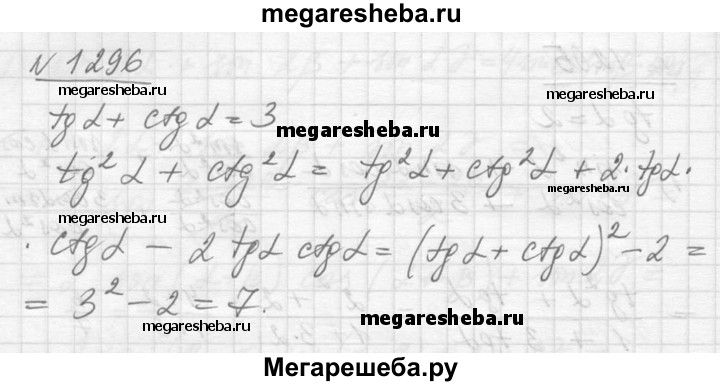 megaresheba.ru
N 1296
tg α + ctg α = 3
megaresheba.ru
tg² α + ctg² α = tg² α + ctg² α + 2 · tg α ·
megaresheba.ru
megaresheba.ru
· ctg α − 2 tg α ctg α = (tg α + ctg α)² − 2 =
= 3² − 2 = 7.
megaresheba.ru
megaresheba.ru
Мегарешеба.ру